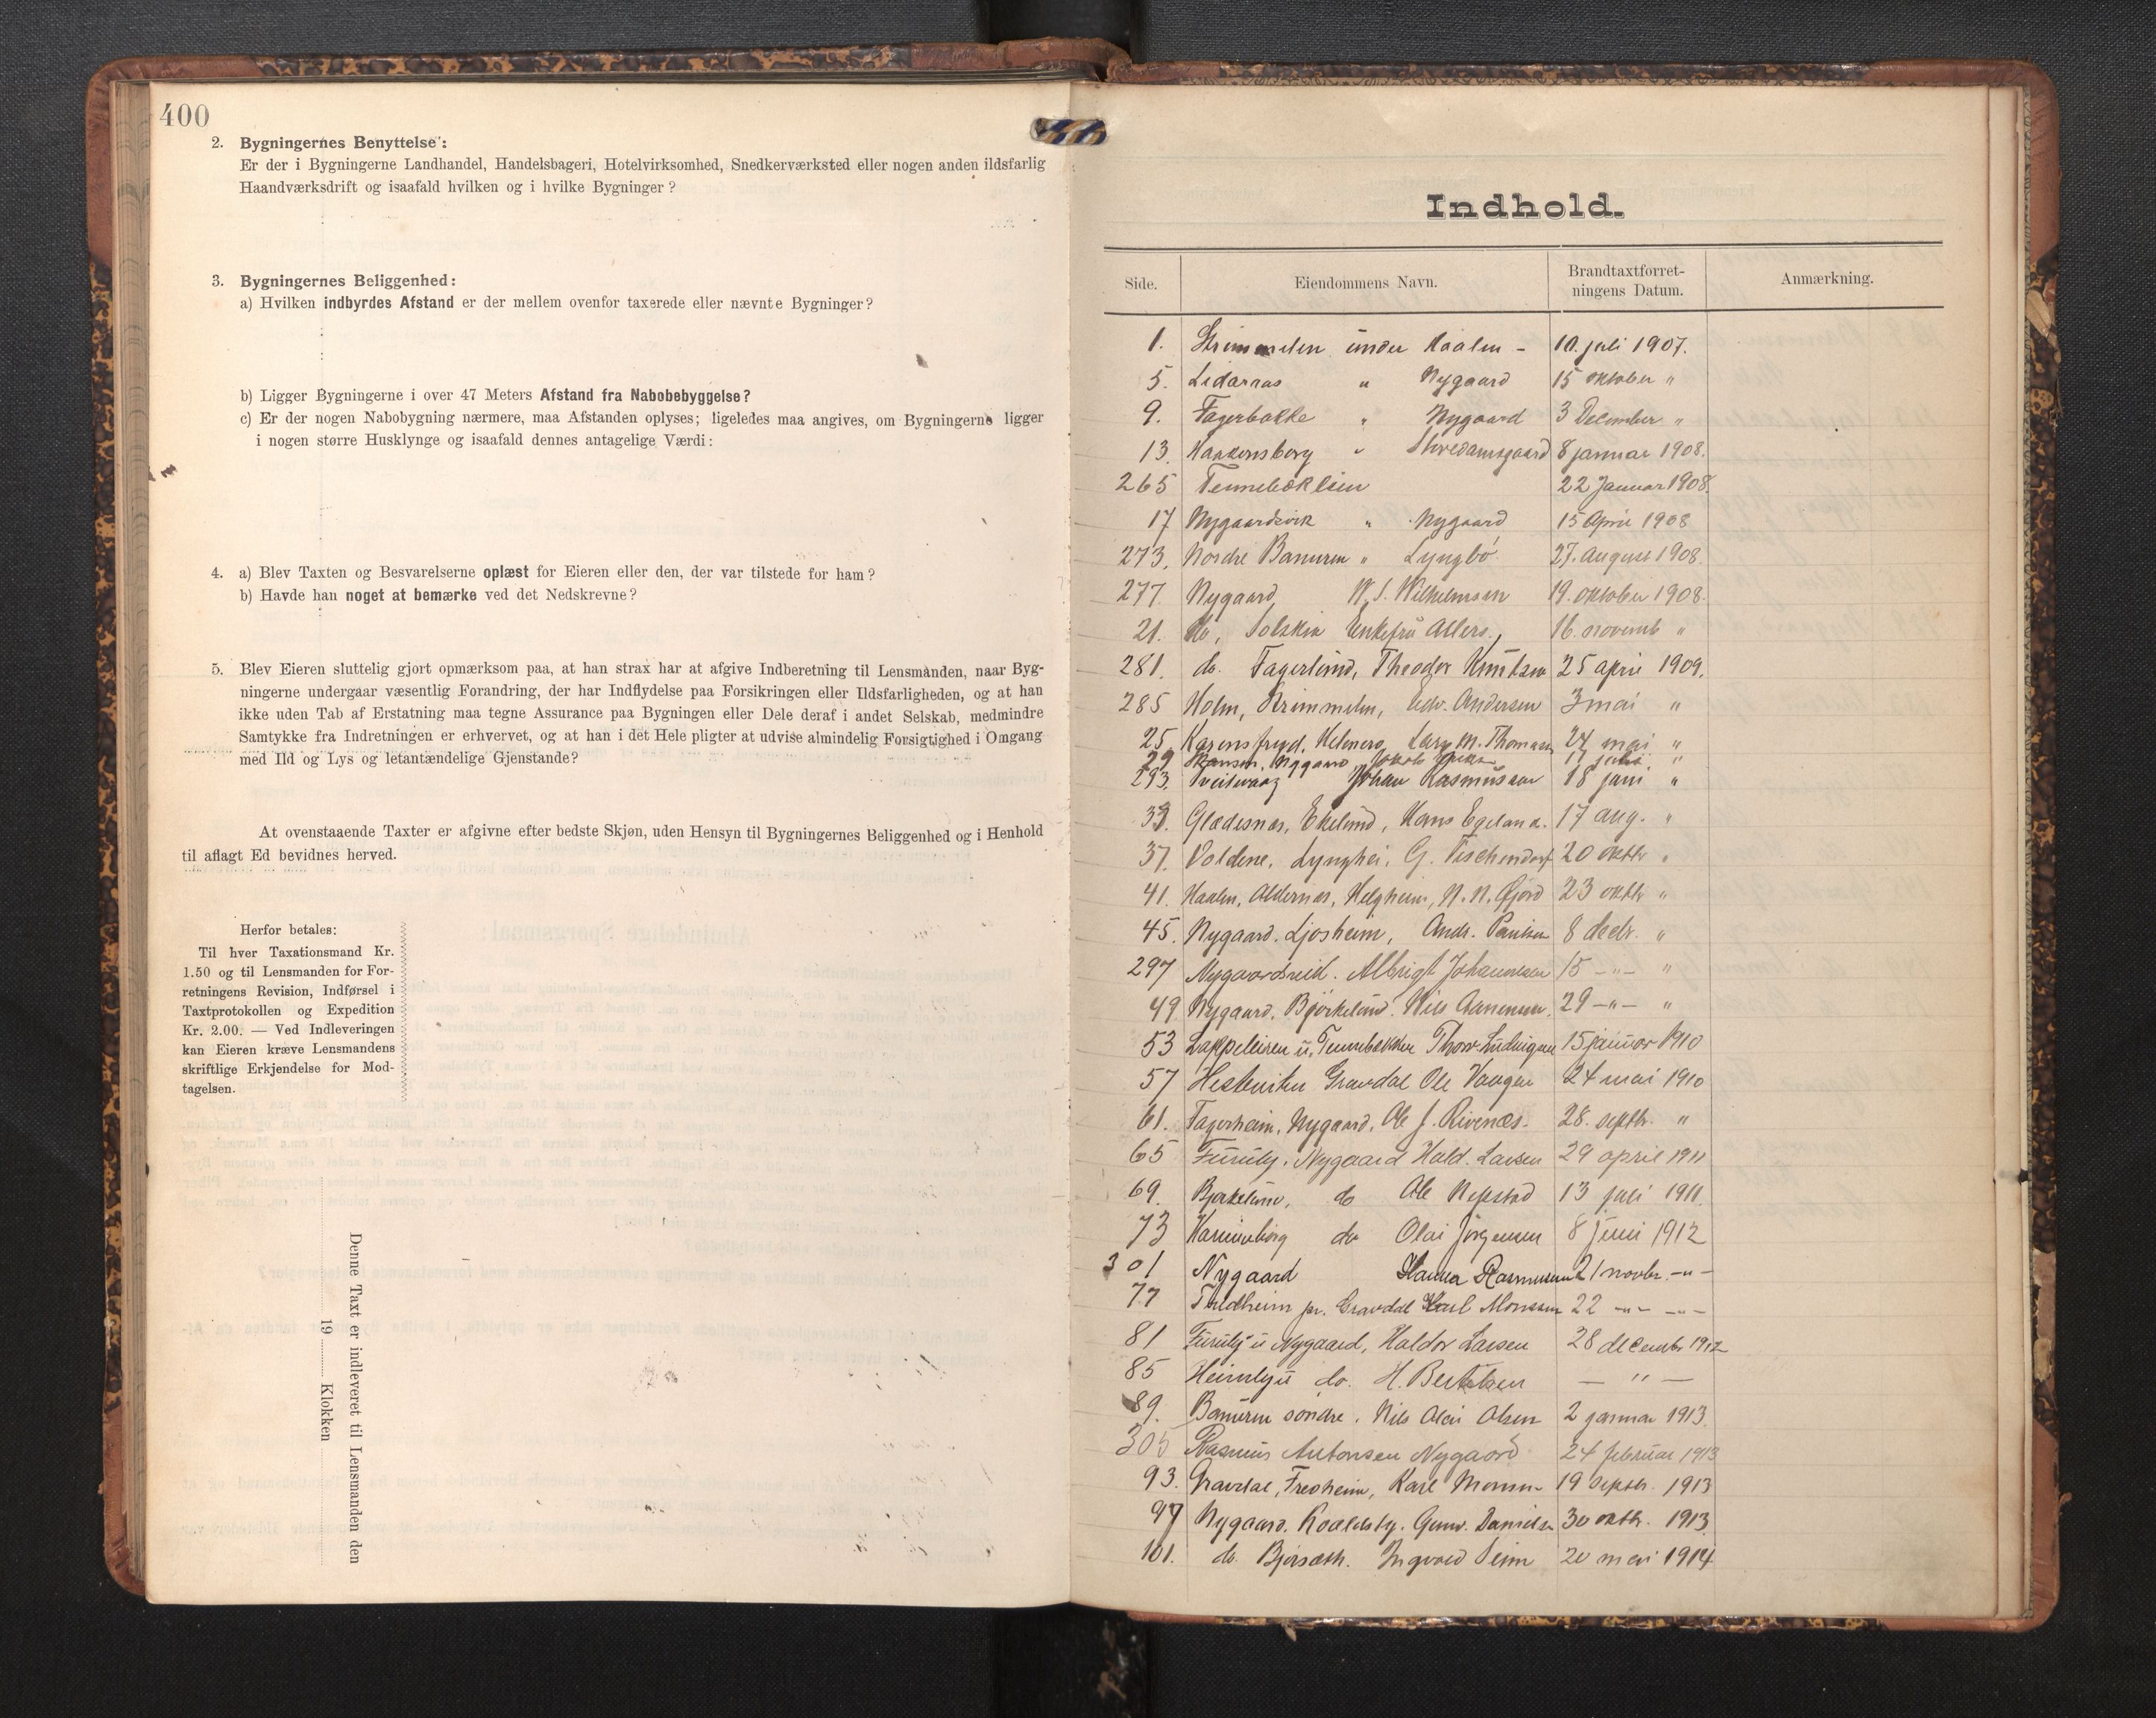 400
2. Bygningernes Benyttelse:
Er der i Bygningerne Landhandel, Handelsbageri, Hotelvirksomhed, Snedkerværksted eller nogen anden ildsfarlig
Haandværksdrift og isaafald hvilken og i hvilke Bygninger?
3. Bygningernes Beliggenhed:
a) Hvilken indbyrdes Afstand er der mellem ovenfor taxerede eller nævnte Bygninger?
b) Ligger Bygningerne i over 47 Meters Afstand fra Nabobebyggelse?
c) Er der nogen Nabobygning nærmere, maa Afstanden oplyses; ligeledes maa angives, om Bygningerne ligger
i nogen større Husklynge og isaafald dennes antagelige Værdi:
4. a) Blev Taxten og Besvarelserne oplæst for Eieren eller den, der var tilstede for ham?
b) Havde han noget at bemærke ved det Nedskrevne?
5. Blev Eieren sluttelig gjort opmærksom paa, at han strax har at afgive Indberetning til Lensmanden, naar Byg-
ningerne undergaar væsentlig Forandring, der har Indflydelse paa Forsikringen eller Ildsfarligheden, og at han
ikke uden Tab af Erstatning maa tegne Assurance paa Bygningen eller Dele deraf i andet Selskab, medmindre
Samtykke fra Indretningen er erhvervet, og at han i det Hele pligter at udvise almindelig Forsigtighed i Omgang
med Ild og Lys og letantændelige Gjenstande?
At ovenstaaende Taxter er afgivne efter bedste Skjøn, uden Hensyn til Bygningernes Beliggenhed og i Henhold
til aflagt Ed bevidnes herved.
Herfor betales:
Til hver Taxationsmand Kr.
1.50 og til Lensmanden for For-
retningens Revision, Indførsel i
Taxtprotokollen og Expedition
Kr. 2.00. — Ved Indleveringen
kan Eieren kræve Lensmandens
skriftlige Erkjendelse for Mod-
tagelsen.
Denne Taxt er indleveret til Lensmanden den
19 Klokken
Indhold.
Side. Eiendommens Navn. Brandtaxtforret-ningens Datum. Anmærkning.
1. Strimmelen under Haalen - 10. juli 1907.
5. " Nygaard 15 oktober "
9. Fagerbakke " Nygaard 3 December "
13. Haakonsborg " 8 januar 1908.
265 22 Januar 1908.
17 Nygaardsvik " Nygaard 15 April 1908
273. Nordre Banuren " Lyngbö 27. August 1908
277. Nygaard W. S. Wilhelmsen 19. oktober 1908.
21. do, Solskin Enkefru Allers., 16. novemb "
281. do. Fagerlund, Theodor Knutsen 25 april 1909.
285 Holm, Strimmelen, Edv. Andersen 3 mai "
25. Karensfryd, Lars M. Thomsen 24 mai "
29 Skansen, Nygaard, Jakob 17 "
293. Johan Rasmussen 18 juni "
33. Gladesnes, Ekelund, Hans Egeland. 17 aug. "
37. Voldene, Lynghei, G. Tischendorf 20 oktbr "
41. Haalen, Aldernes, Helgheim, N. N. Gjörd 23 oktbr "
45. Nygaard. Ljosheim, Andr. 8 decbr. "
297 Nygaardseid. Albrigt Johannesen 15 —"— "
49. Nygaard. Björkelund. Nils Aanensen. 29 —"— "
53 Lappeleiren u. Tennebekken Thorv. Ludvigsen 15 januar 1910
57 Gravdal Ole Vaagen 24 mai 1910
61. Fagerheim, Nygaard, Ole J. Rivenæs. 28. septbr. "
65 Furuly, Nygaard Hald. Larsen 29 april 1911
69. Bjerkelund, do Ole Nepstad 13 juli 1911.
73 do Olai Jörgensen 8 Juni 1912
301 Nygaard Hanna Rasmussen 21 novbr. —"—
77 Fredheim pr. Gravdal Karl Monsen 22 —"— —"—
81 Furuly u Nygaard, Haldor Larsen 28 decembr 1912
85 Heimly u do. H. Bertelsen — " —
89. Banuren söndre. Nils Olai Olsen 2 januar 1913.
305 Rasmus Antonsen Nygaard 24 februar 1913
93. Gravdal, Fredheim, Karl Monsen 19 septbr. 1913
97 Nygaard. Gunv. Danielsen 30 oktbr. 1913.
101. do. Ingvald Seim 20 mai 1914